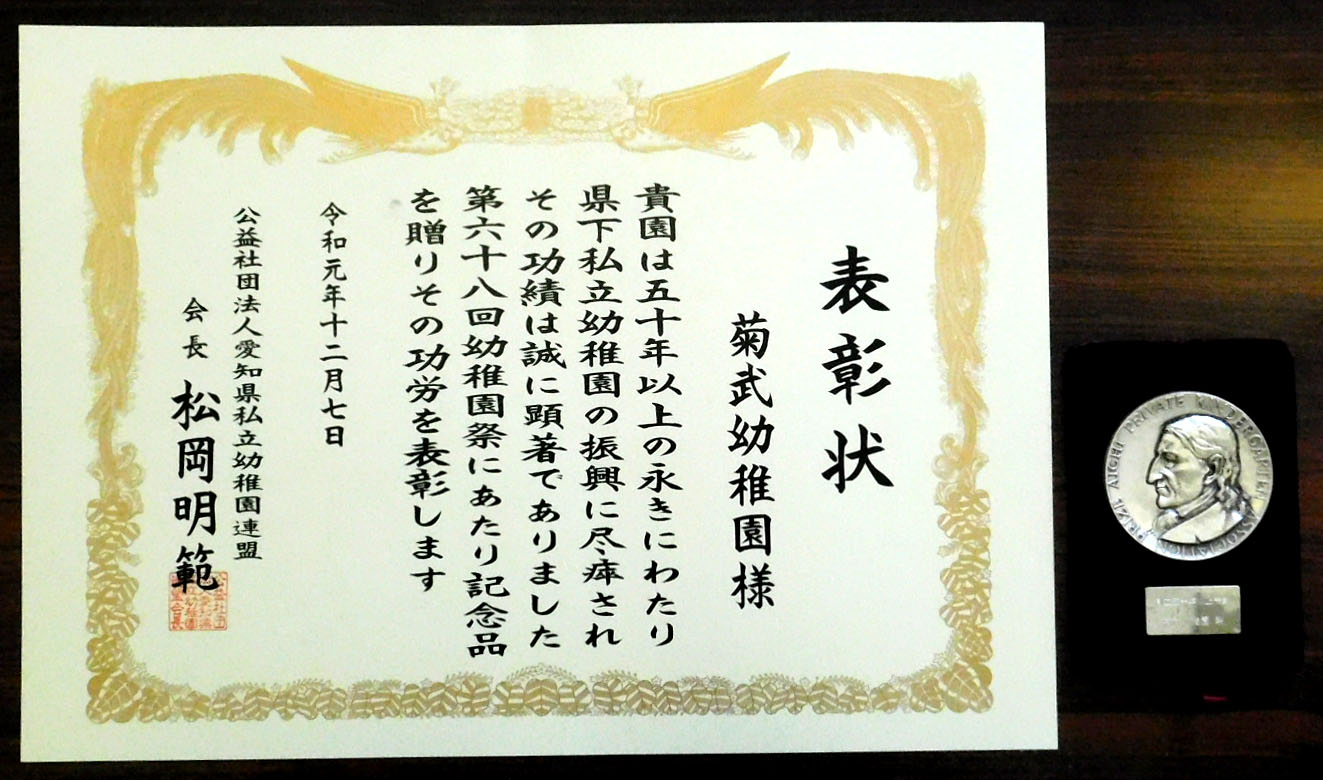 表彰状
菊武幼稚園様
貴園は五十年以上の永きにわたり
県下私立幼稚園の振興に尽瘁され
その功績は誠に顕著でありました
第六十八回幼稚園祭にあたり記念品
を贈りその功労を表彰します
令和元年十二月七日
公益社団法人愛知県私立幼稚園連盟
会長 松岡明範
PRIZE AICHI PRIVATE KINDERGARTEN ASSOCIATION